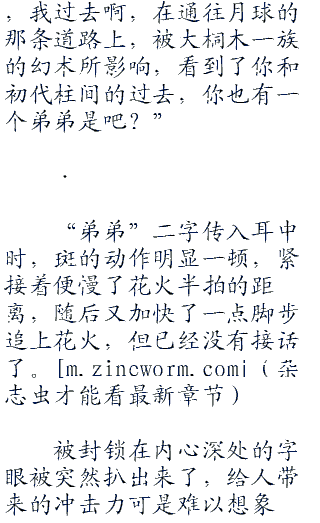 ，我过去啊，在通往月球的
那条道路上，被大桐木一族
的幻术所影响，看到了你和
初代柱间的过去，你也有一
个弟弟是吧？”
.
“弟弟”二字传入耳中
时，斑的动作明显一顿，紧
接着便慢了花火半拍的距
离，随后又加快了一点脚步
追上花火，但已经没有接话
了。[m.zincworm.com¡（杂
志虫才能看最新章节）
被封锁在内心深处的字
眼被突然扒出来了，给人带
来的冲击力可是难以想象